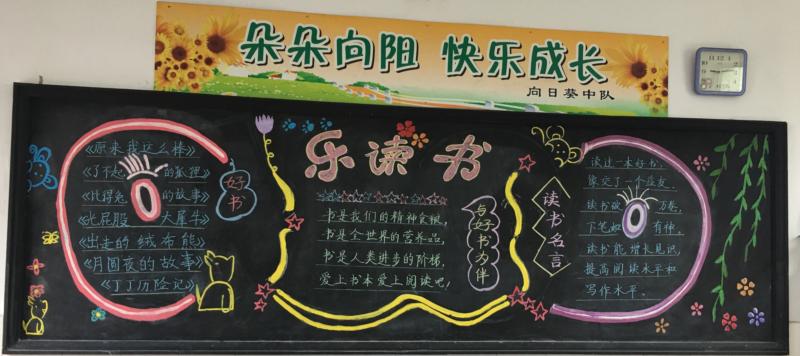 朵朵向阳 快乐成长
向日葵中队
乐读书
好书
《原来我这么棒》
《了不起的狐狸》
《比得兔的故事》
《大屁股 大犀牛》
《出走的绒布熊》
《月圆夜的故事》
《丁丁历险记》
书是我们的精神食粮,
书是全世界的营养品,
书是人类进步的阶梯,
爱上书本爱上阅读吧!
与好书为伴
读书名言
读过一本好书,
像交了一个益友.
读书破万卷,
下笔如有神,
读书能增长见识
提高阅读水平和
写作水平.